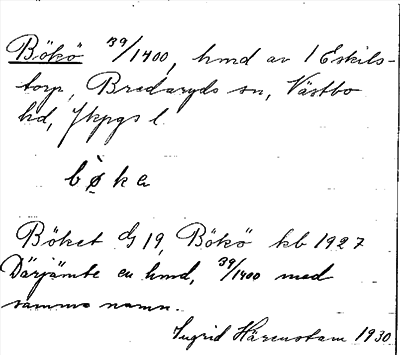 Bökö 39/1400, hmd av 1 Eskils-
torp, Bredaryds sn, Västbo
hd, Jkpgs l.
böka
Böket G 19, Bökö kb 1927
Därjämte en hmd, 39/1400 med
samma namn.
Ingrid Härenstam 1930